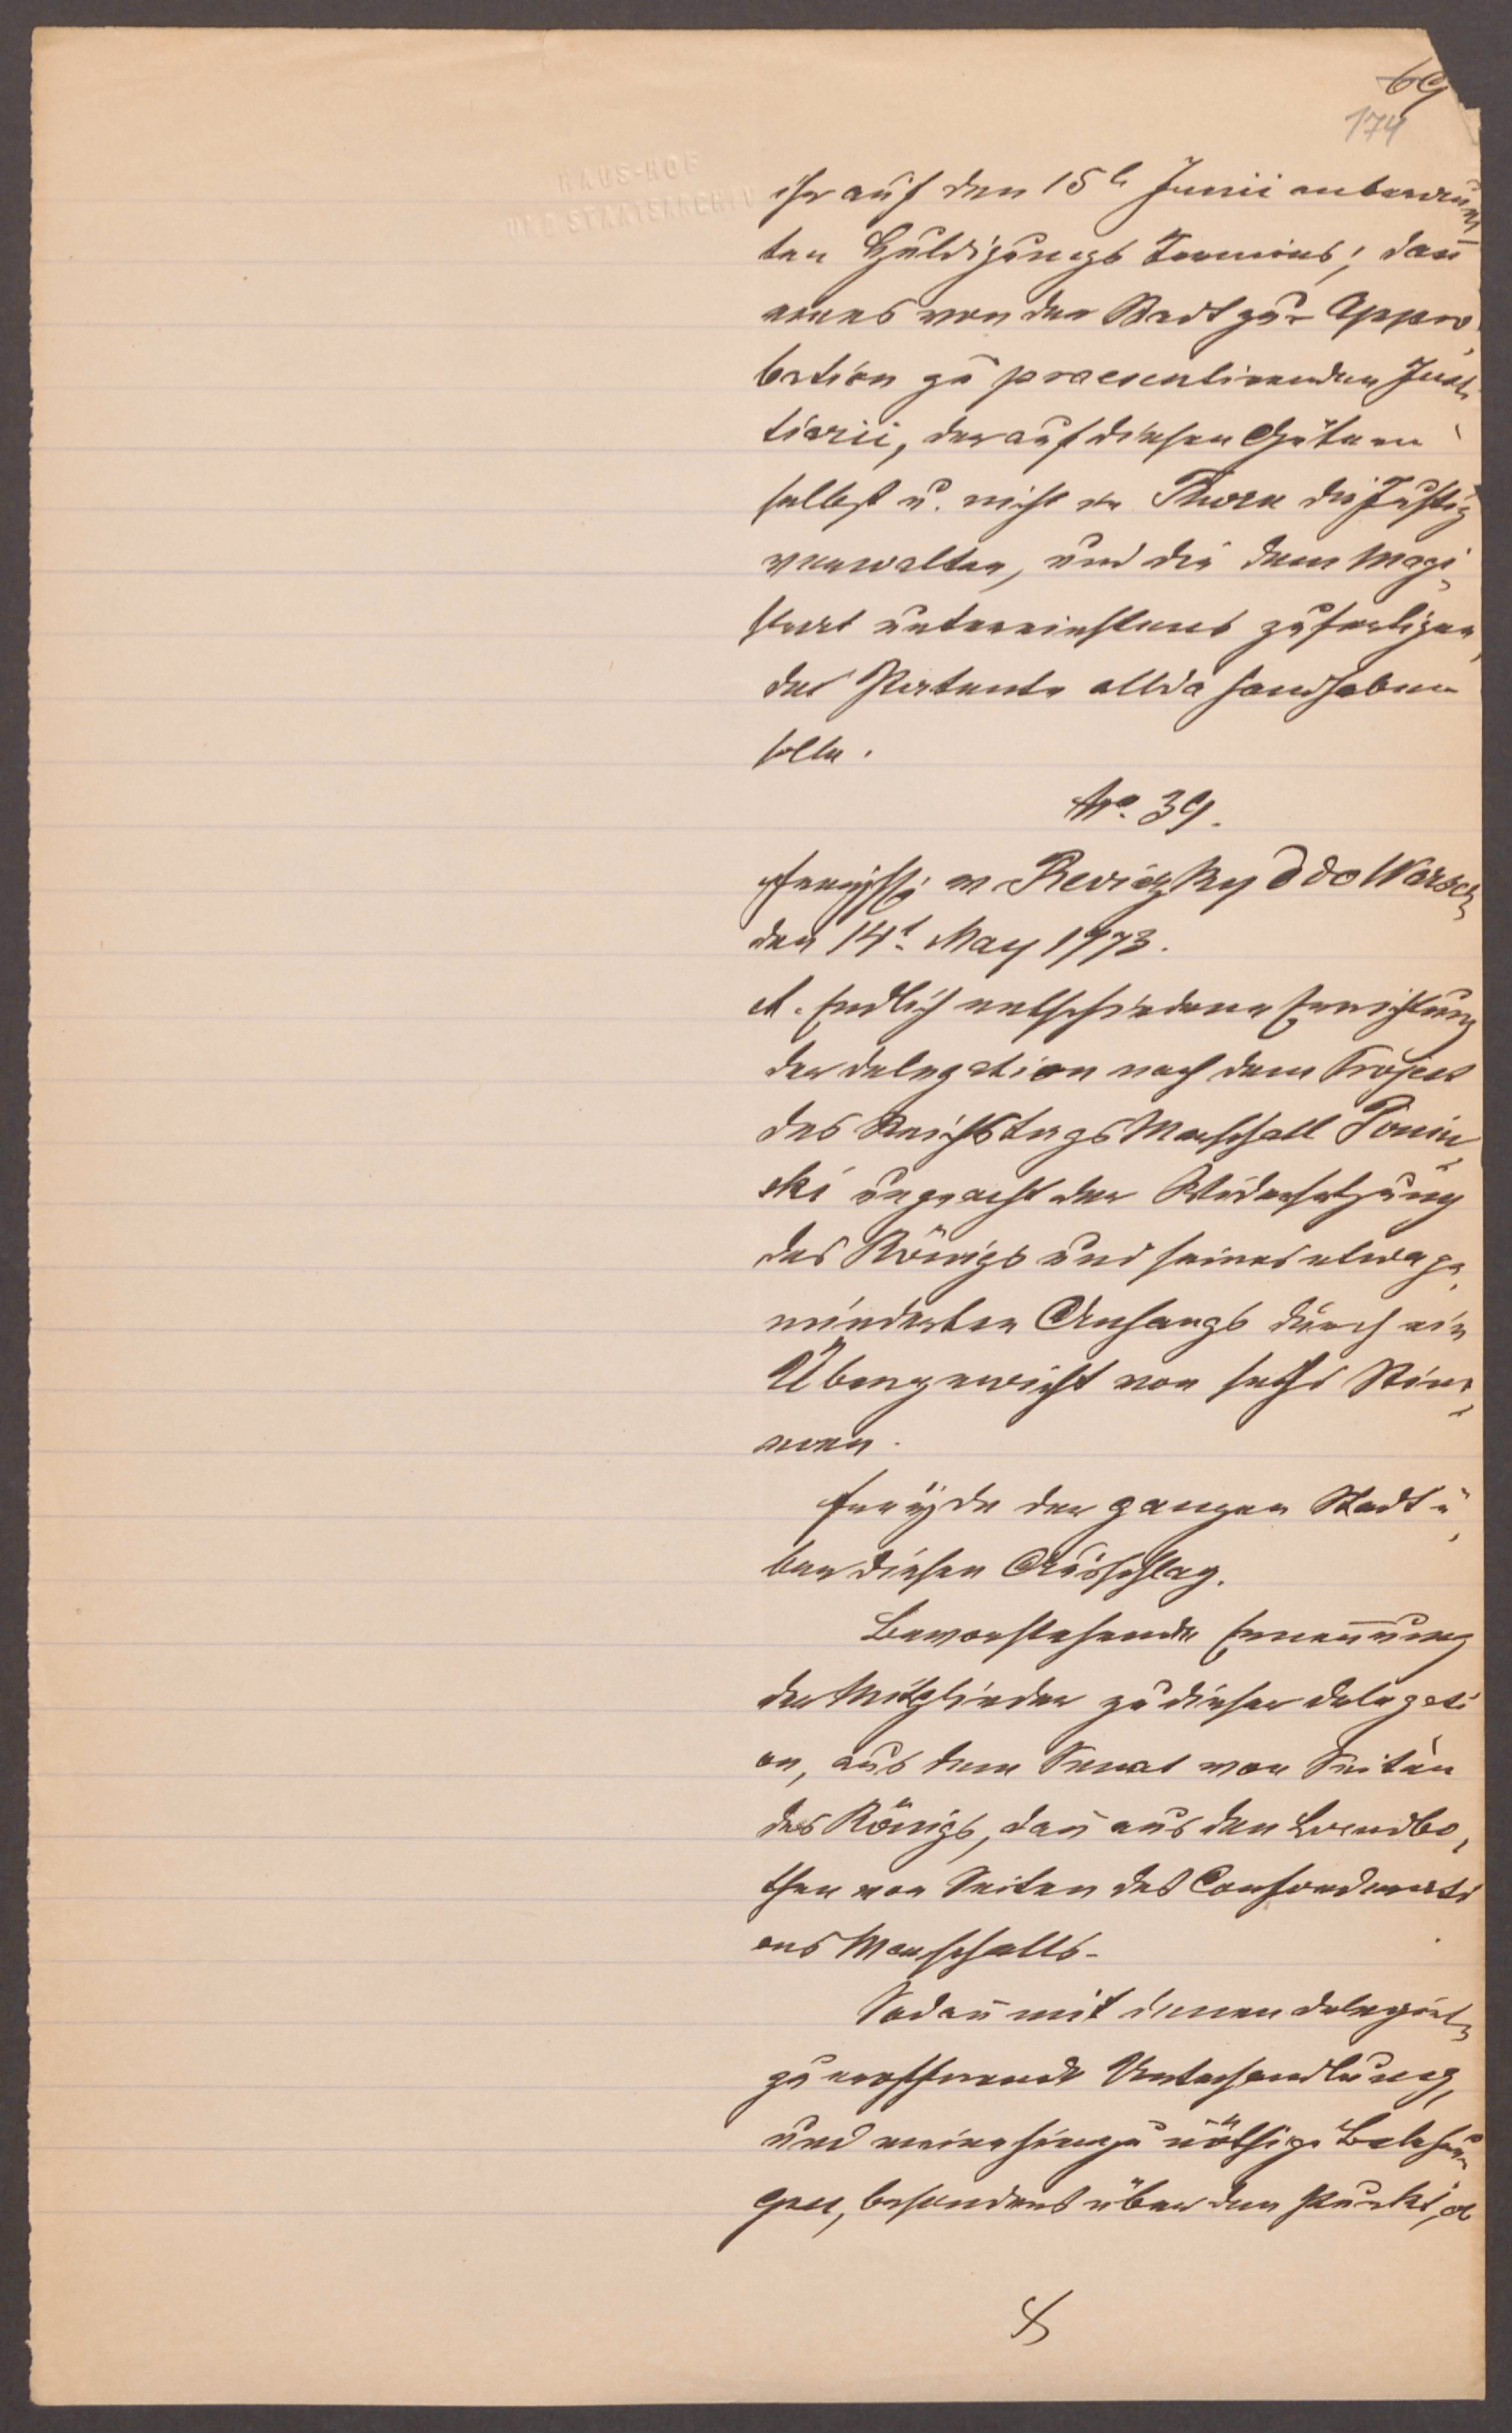 69
174
HAUS-HOF
UND STAATSARCHIV
ihr auf den 15t Junii anberaum¬
ten Huldigungs Termins; dañ
eines von der Stadt zur Appro¬
bation zu praesentirenden Justi¬
tiarii, der auf diesen Gütern
selbst u. nicht in Thorn die Justiz
verwalten, und die dem Magi¬
strat zufertigen¬
de Patente allda handhaben
solle.
No. 39.
v Reviczky ddo Warsch
den 14t. May 1773.
A. Endlich entschiedene Errichtung
der Delegation nach dem Project
des Reichstags Marschall Ponin¬
ski ungeacht der Widersetzung
des Königs und seines etwa ge¬
minderten Anhangs durch ein
Übergewicht von sechs Stim¬
men.
Freüde der ganzen Stadt ü¬
ber diesen Ausschlag.
Bevorstehende Erneñung
der Mitglieder zu dieser Delegati
on, aus dem Senat von Seiten
des Königs, dañ aus den Landbo¬
then von Seiten des Confoederati
ons Marschalls.
Sodañ mit denen Delegirt
zu eröffnende Unterhandlung,
und meine hierzu nöthige Belehrun
gen, besonders über den Punkt, ob